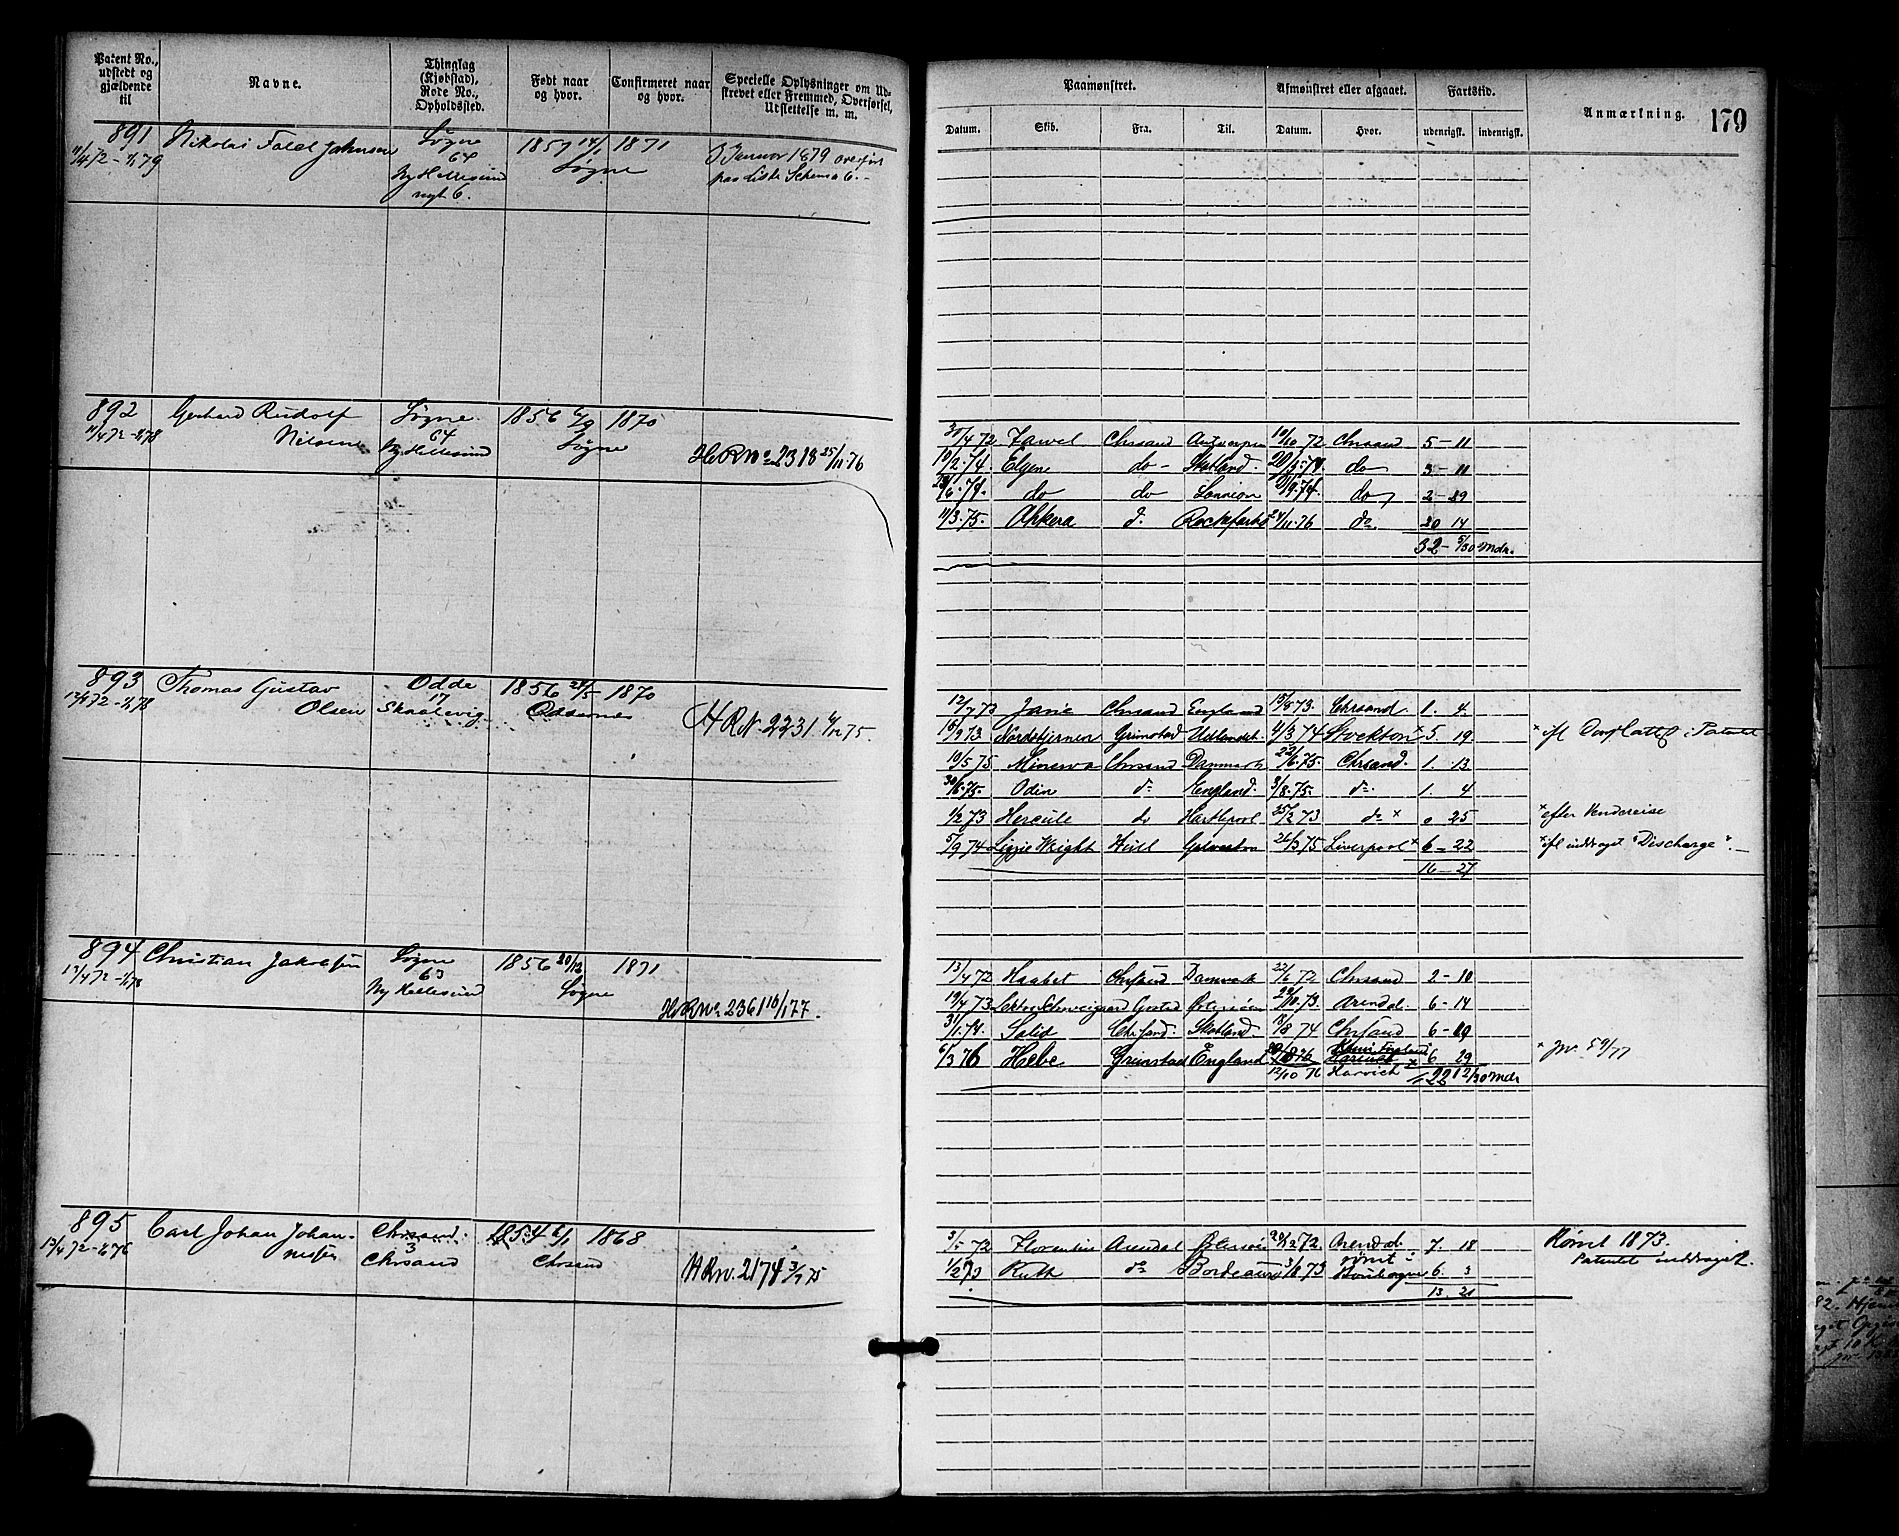 Patent No., udstedt og gjældende til
Navne.
Thinglag (Kjøbstad), Rode No., Opholdssted.
Født naar og hvor.
Confirmeret naar og hvor.
Specielle Oplysninger om Udstrevet eller Fremmed, Overførsel, Udslettelse m. m.
891 Nikolai Johnsen Søgne 1857 14/ 1871 3 Januar 1879 overført
11/4 72 - 1/1 79 64 Søgne paa Liste Schema 6.-
Ny Hellesund
nyt 6.
892 Gerhard Rudolf Søgne. 1856 6/9 1870
11/4 72 - 1/1 78 Nilsen 64 Søgne HRNo 2318 25/11 76
Ny Hellesund
893 Thomas Gustav Odde 1856 1870
12/4 72 - 1/1 78 Olsen 17 Oddernes HRN. 2231 75.
Skaalevig
894 Christian Jakobsen Søgne 1856 20/12 1871
13/4 72 - 1/1 78 63 Søgne
Ny Hellesund HRNo 2361 16/1 77.
895 Carl Johan Johan- Chrsand. 1854 6/1 1868
13/4 72 - 1/1 76 nesen 3 Chrsand
Chrsand HRNo. 2174 3/7 75
Paamønstret.
Afmønstret eller afgaaet.
Fartstid.
Anmærkning. 179
Datum. Skib. Fra. Til. Datum. Hvor. udenrigsk. indenrigsk.
30/4 72 Chrsand Antverpen 10/10 72 Chrsand 5 - 11
10/2 74. do - Skotland. 20/5 74. do 3 - 11
do do 74. do 2 - 29
11/3 75. Ahkera d. 24/11 76 do. 20 14
32 - 5/30 Mdr.
12/7 73 Chrsand England 15/8 73. Chrsand. 1. 4.
15/9 73 Nordstjernen Grimstad Udlandet. 4/3 74 Stockton x 5. 19.
10/5 75 Minerva Chrsand Danmark 22/6 75. Chrsand. 1. 13
30/6 75. Odin do England. 3/8 75. do. 1. 4
1/2 73 Hercule do Hartlpool 25/2 73 do x 0 25 x efter Vendereise
5/9 74 Lizzie Wright Hull Galveston 26/3 75 Liverpool x 6 - 22 x ifl inddraget "Discharge".-
16 - 27
13/4 72 Haabet Chrsand Danmark 22/6 72 Chrsand 2 - 10
19/4 73 Østersøen 73. Arendal 6 - 14
3/1 74. Solid Chrsand. Skotland. 18/8 74 Chrsand 6 - 19
6/3 76 Hebe Grimstad England 6 29 x jvr. 59/77
12/10 76 Harvich x 22 12/30 Mdr
3/5 72 Florentin Arendal Østersøen 20/12 72. Arendal 7. 18 Rømt 1873.
1/2 73 Ruth do Bordeaux 3/8 73 rømt i 6. 3 Patentet inddraget.
Boulogne
13 21